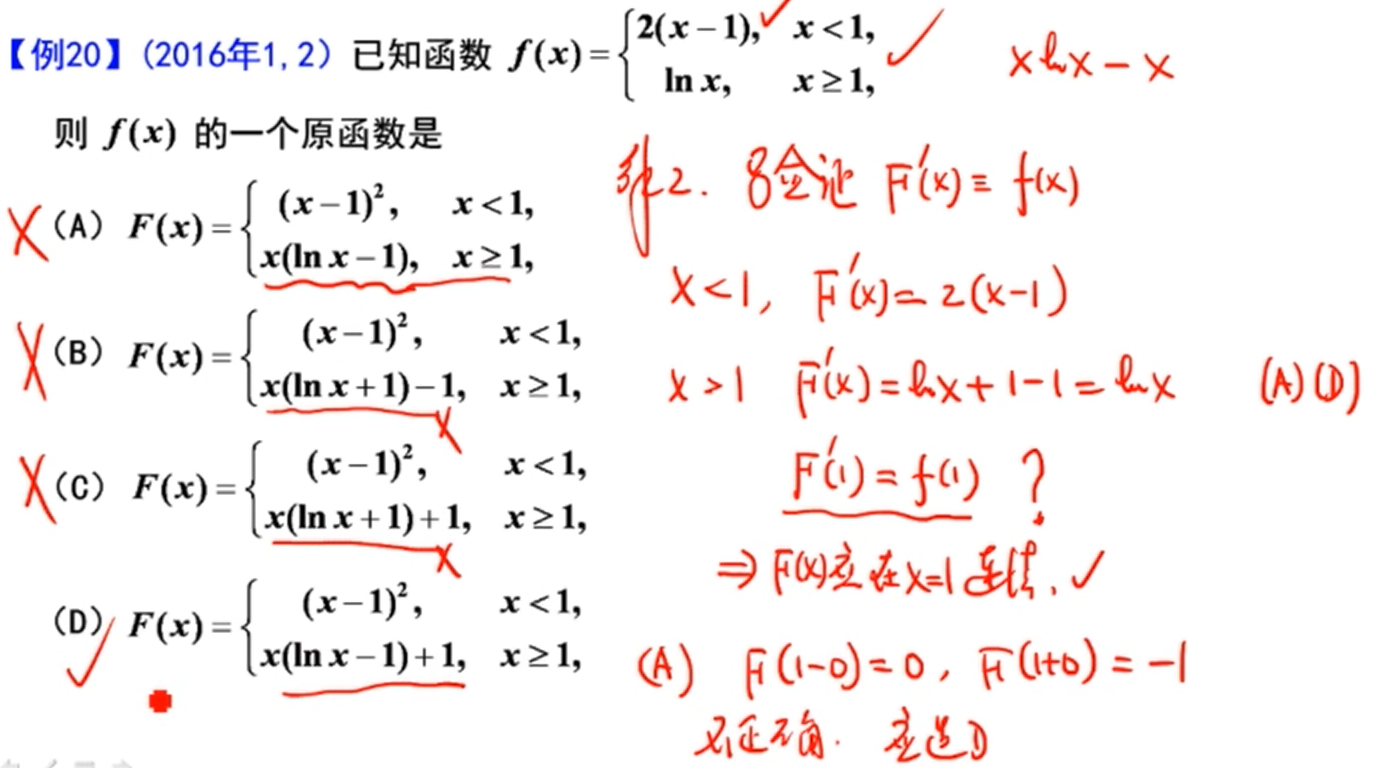 【例20】(2016年1,2) 已知函数 f(x)={2(x-1), x<1, ln x, x≥1,
xlnx-x
则 f(x) 的一个原函数是
(A) F(x)={(x-1)², x<1, x(ln x-1), x≥1,
(B) F(x)={(x-1)², x<1, x(ln x+1)-1, x≥1,
(C) F(x)={(x-1)², x<1, x(ln x+1)+1, x≥1,
(D) F(x)={(x-1)², x<1, x(ln x-1)+1, x≥1,
2. 验证 F'(x)≡f(x)
x<1, F'(x)=2(x-1)
x>1 F'(x)=lnx+1-1=lnx (A)(D)
F'(1)=f(1) ?
⇒ F(x)应在x=1连续.
(A) F(1-0)=0, F(1+0)=-1
不正确. 应选D